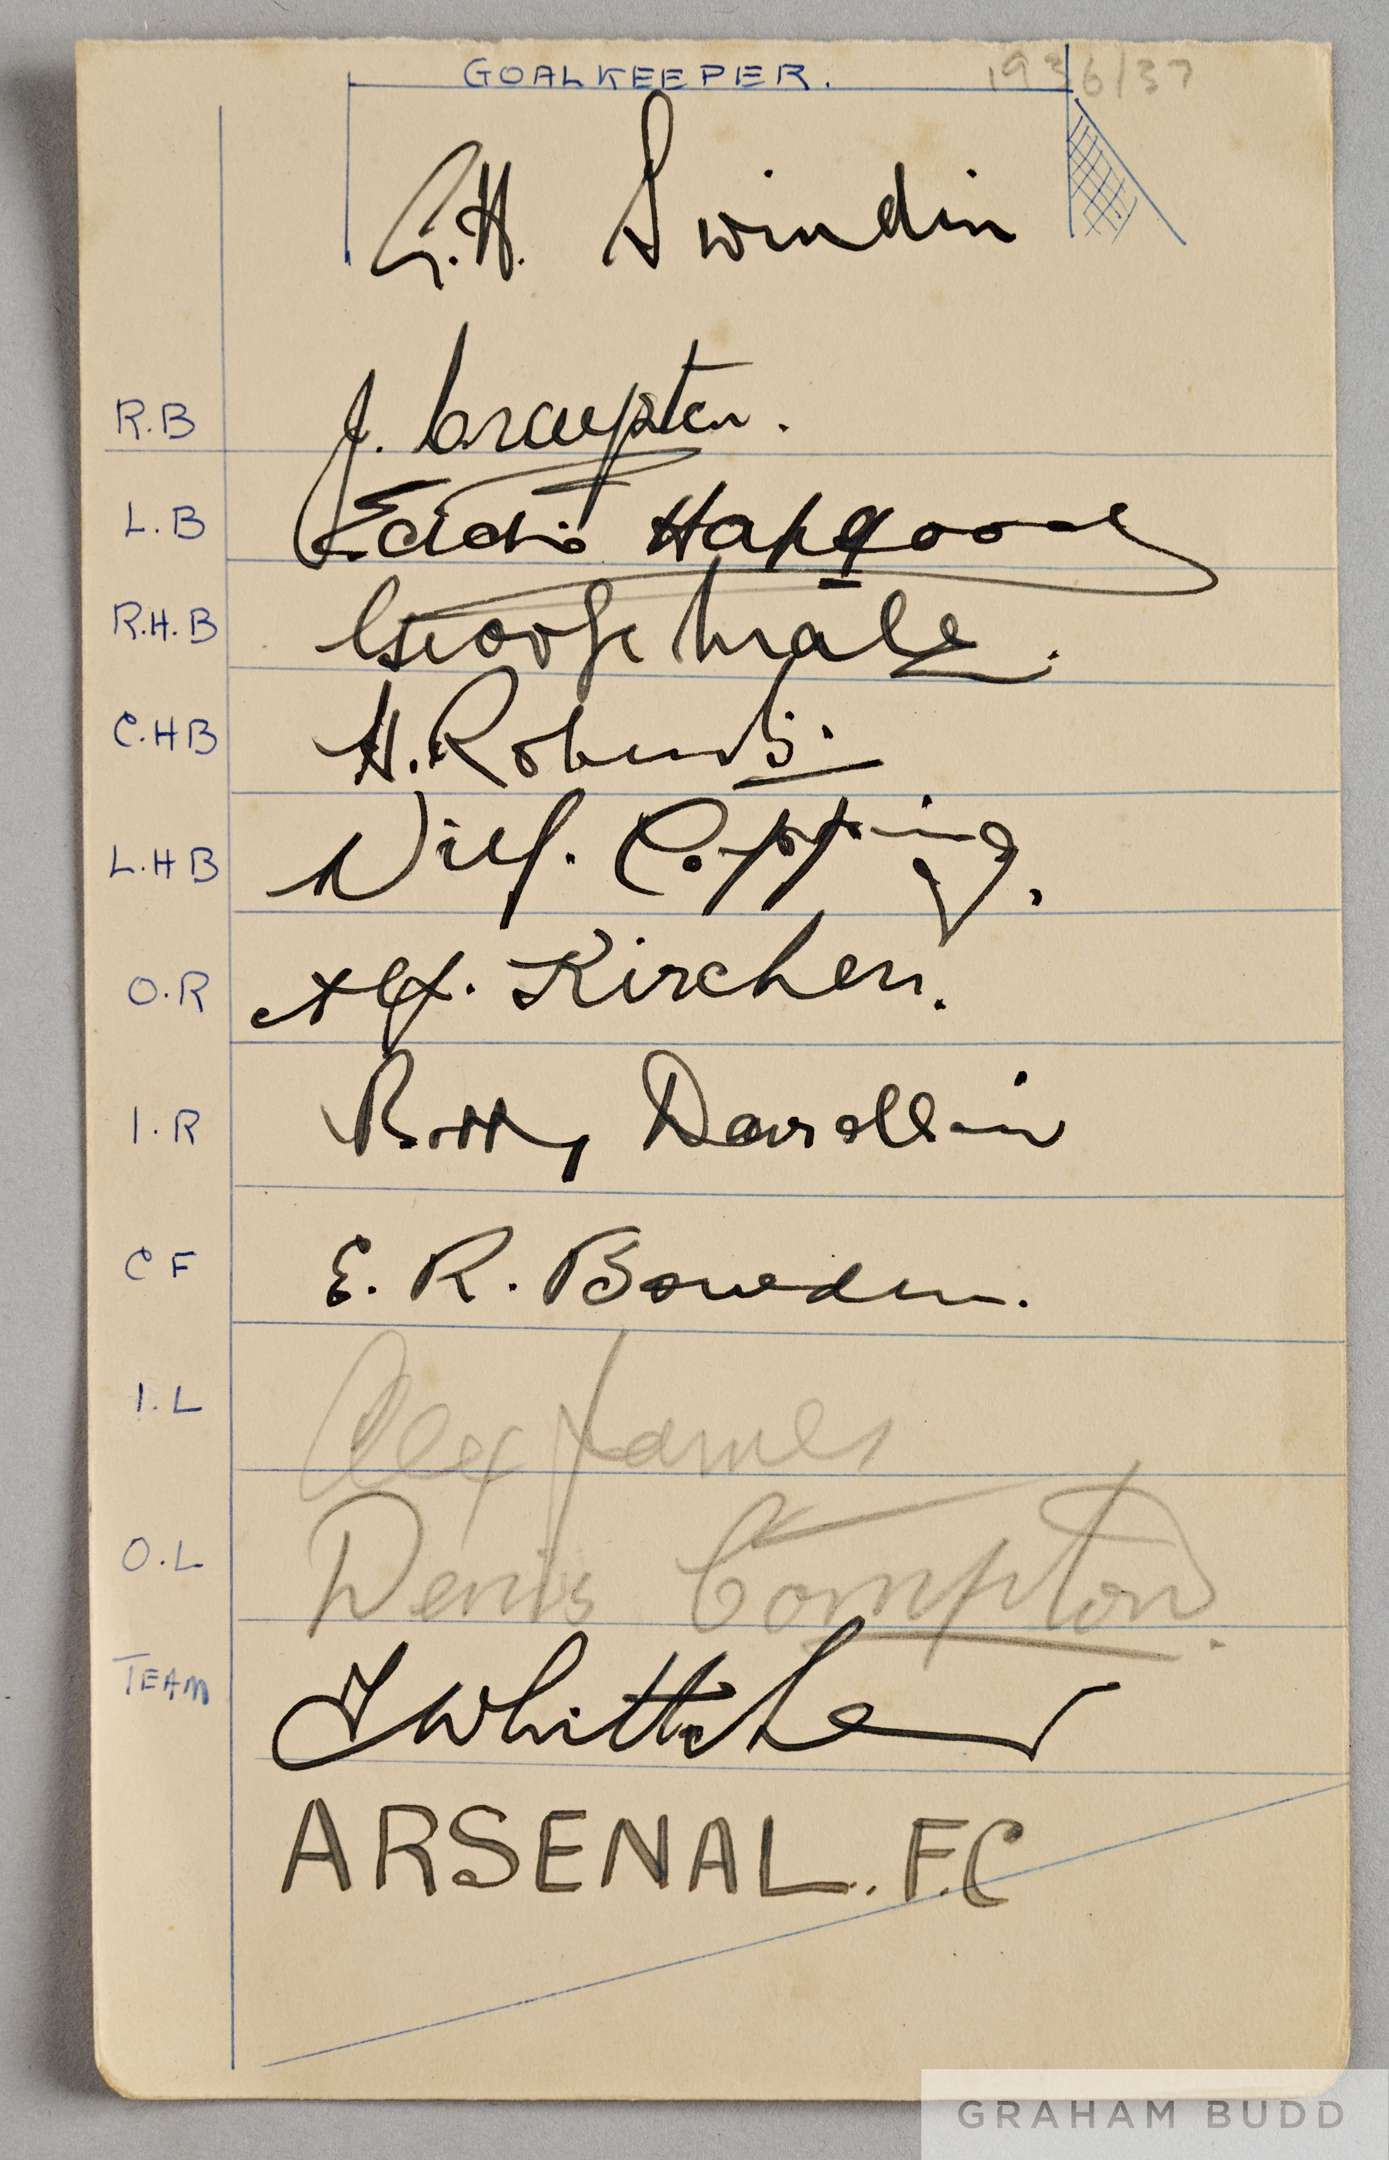 GOALKEEPER. 1936/37
G.H. Swindin
R.B J. Crayston.
L.B Eddie Hapgood
R.H.B George Male.
C.H.B H. Roberts.
L.H.B Wilf. Copping.
O.R Alf. Kirchen.
I.R Bobby Davidson
C F E. R. Bowden.
I.L Alex James
O.L Denis Compton.
TEAM T Whittaker
ARSENAL. F.C
GRAHAM BUDD